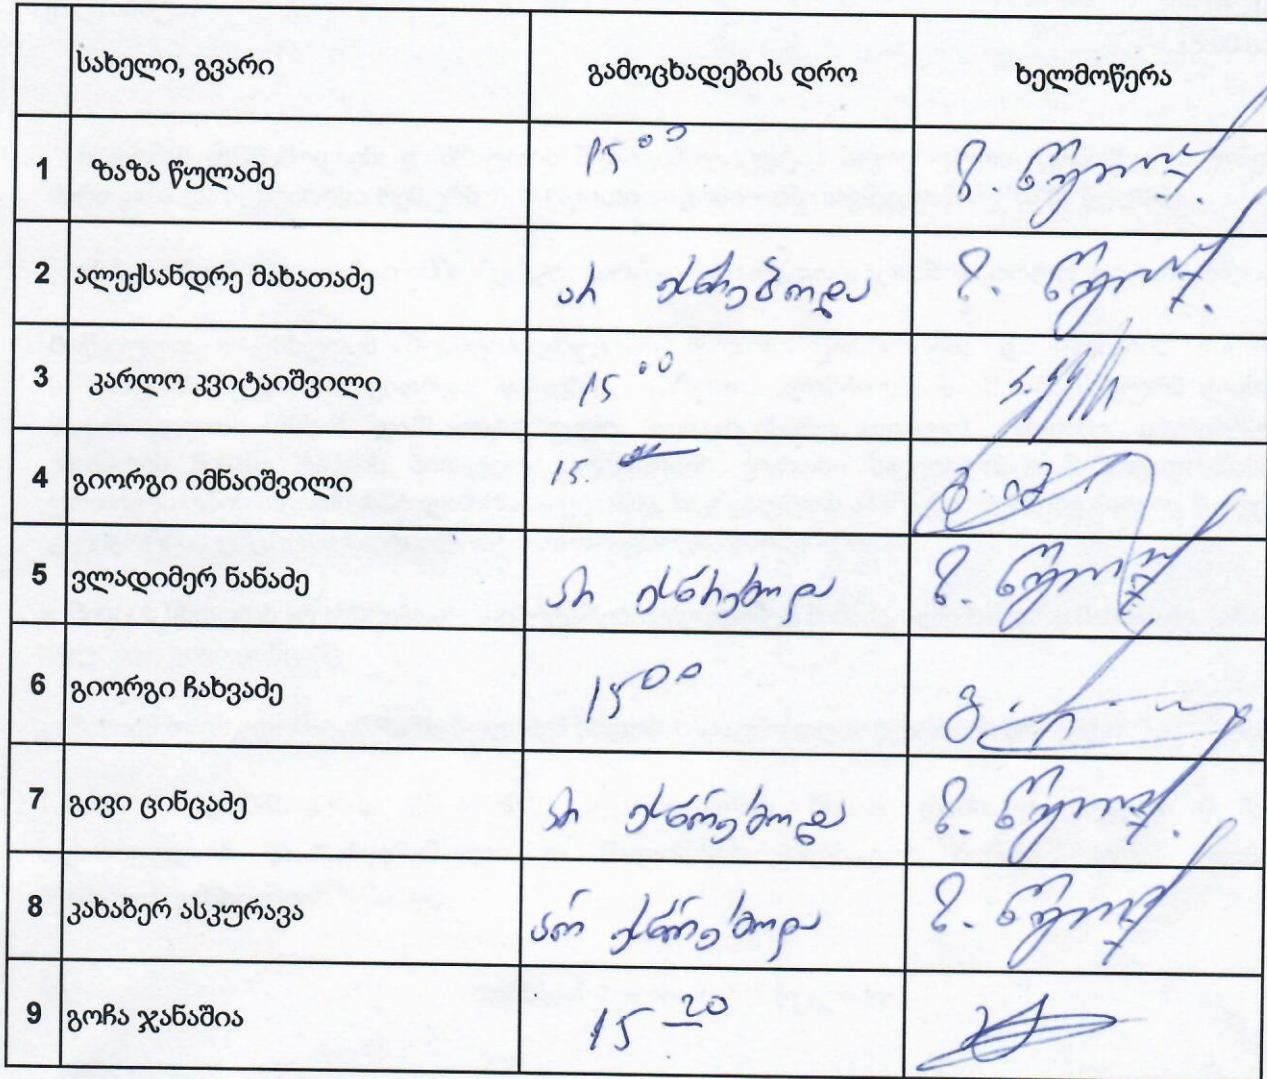 სახელი, გვარი გამოცხადების დრო ხელმოწერა
1 ზაზა წულაძე 15 00 ზ. წულაძე
2 ალექსანდრე მახათაძე არ ესწრებოდა ზ. წულაძე
3 კარლო კვიტაიშვილი 15 00
4 გიორგი იმნაიშვილი 15.
5 ვლადიმერ ნანაძე არ ესწრებოდა ზ. წულაძე
6 გიორგი ჩახვაძე 15 00
7 გივი ცინცაძე არ ესწრებოდა ზ. წულაძე
8 კახაბერ ასკურავა არ ესწრებოდა ზ. წულაძე
9 გოჩა ჯანაშია 15 20